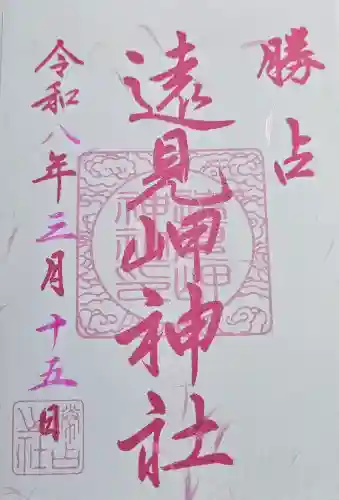 勝占
遠見岬神社
令和八年三月十五日
勝占